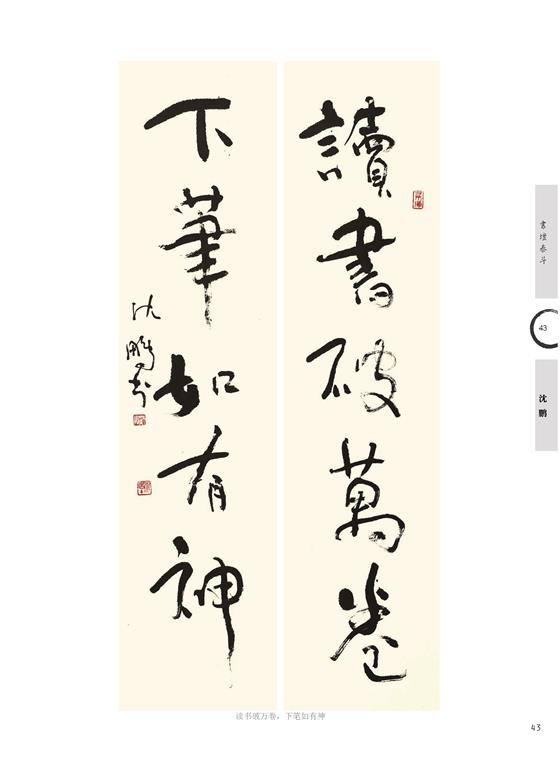 讀書破萬卷
下筆如有神
沈鹏书
读书破万卷，下笔如有神
書壇泰斗
43
沈鹏
43